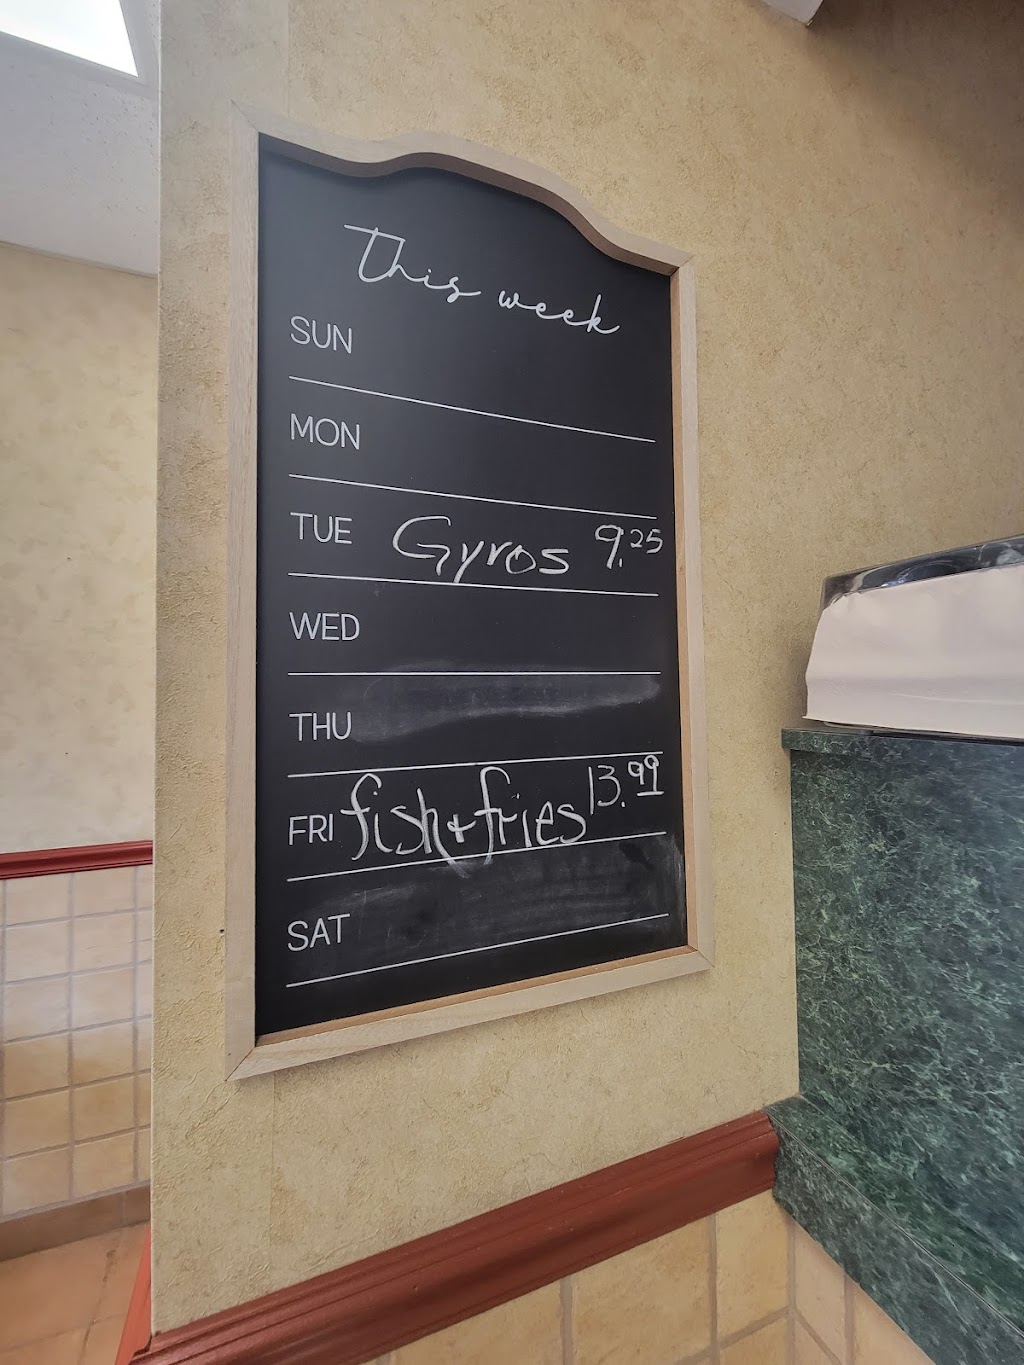 This week
SUN
MON
TUE Gyros 9.25
WED
THU
FRI fish + fries 13.99
SAT